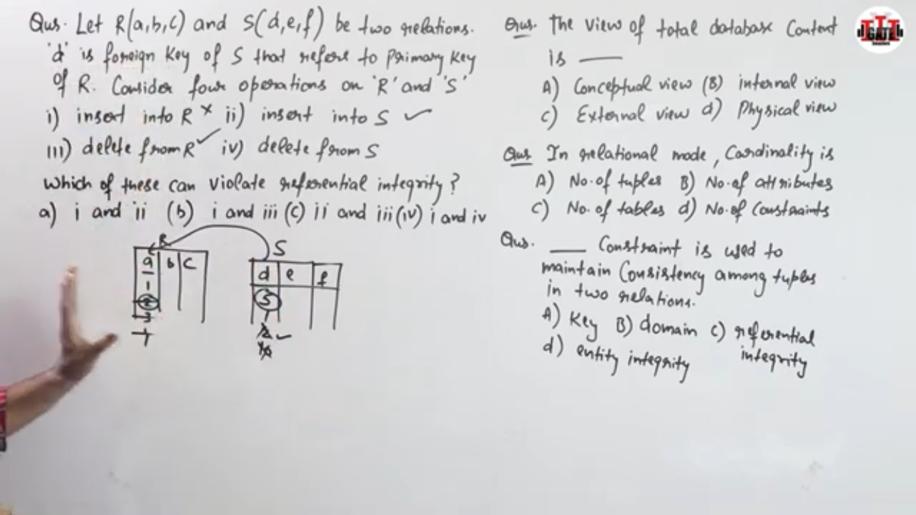 Qus. Let R(a,b,c) and S(d,e,f) be two relations.
'd' is foreign key of S that refers to primary key
of R. Consider four operations on 'R' and 'S'
i) insert into R × ii) insert into S ✓
iii) delete from R ✓ iv) delete from S
which of these can violate referential integrity?
a) i and ii (b) i and iii (c) ii and iii (iv) i and iv
R
a b c
1
2
3
S
d e f
Qus. The view of total database Content
is ___
A) Conceptual view (B) internal view
C) External view d) Physical view
Qus In relational mode, Cardinality is
A) No. of tuples B) No. of attributes
C) No. of tables d) No. of Constraints
Qus. ___ Constraint is used to
maintain Consistency among tuples
in two relations.
A) Key B) domain c) referential
integrity
d) entity integrity
GATE